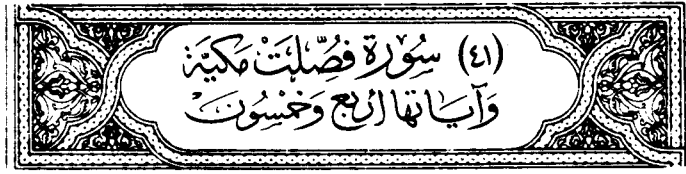 (٤١) سُورَة فُصِّلَتْ مَكيَّة
وَآيَاتها اربَع وَخمْسُونَ